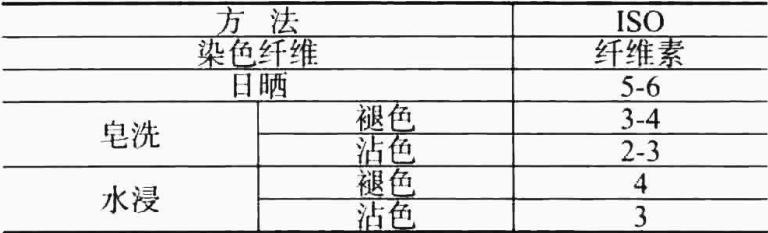 方 法 ISO
染色纤维 纤维素
日晒 5-6
皂洗 褪色 3-4
沾色 2-3
水浸 褪色 4
沾色 3